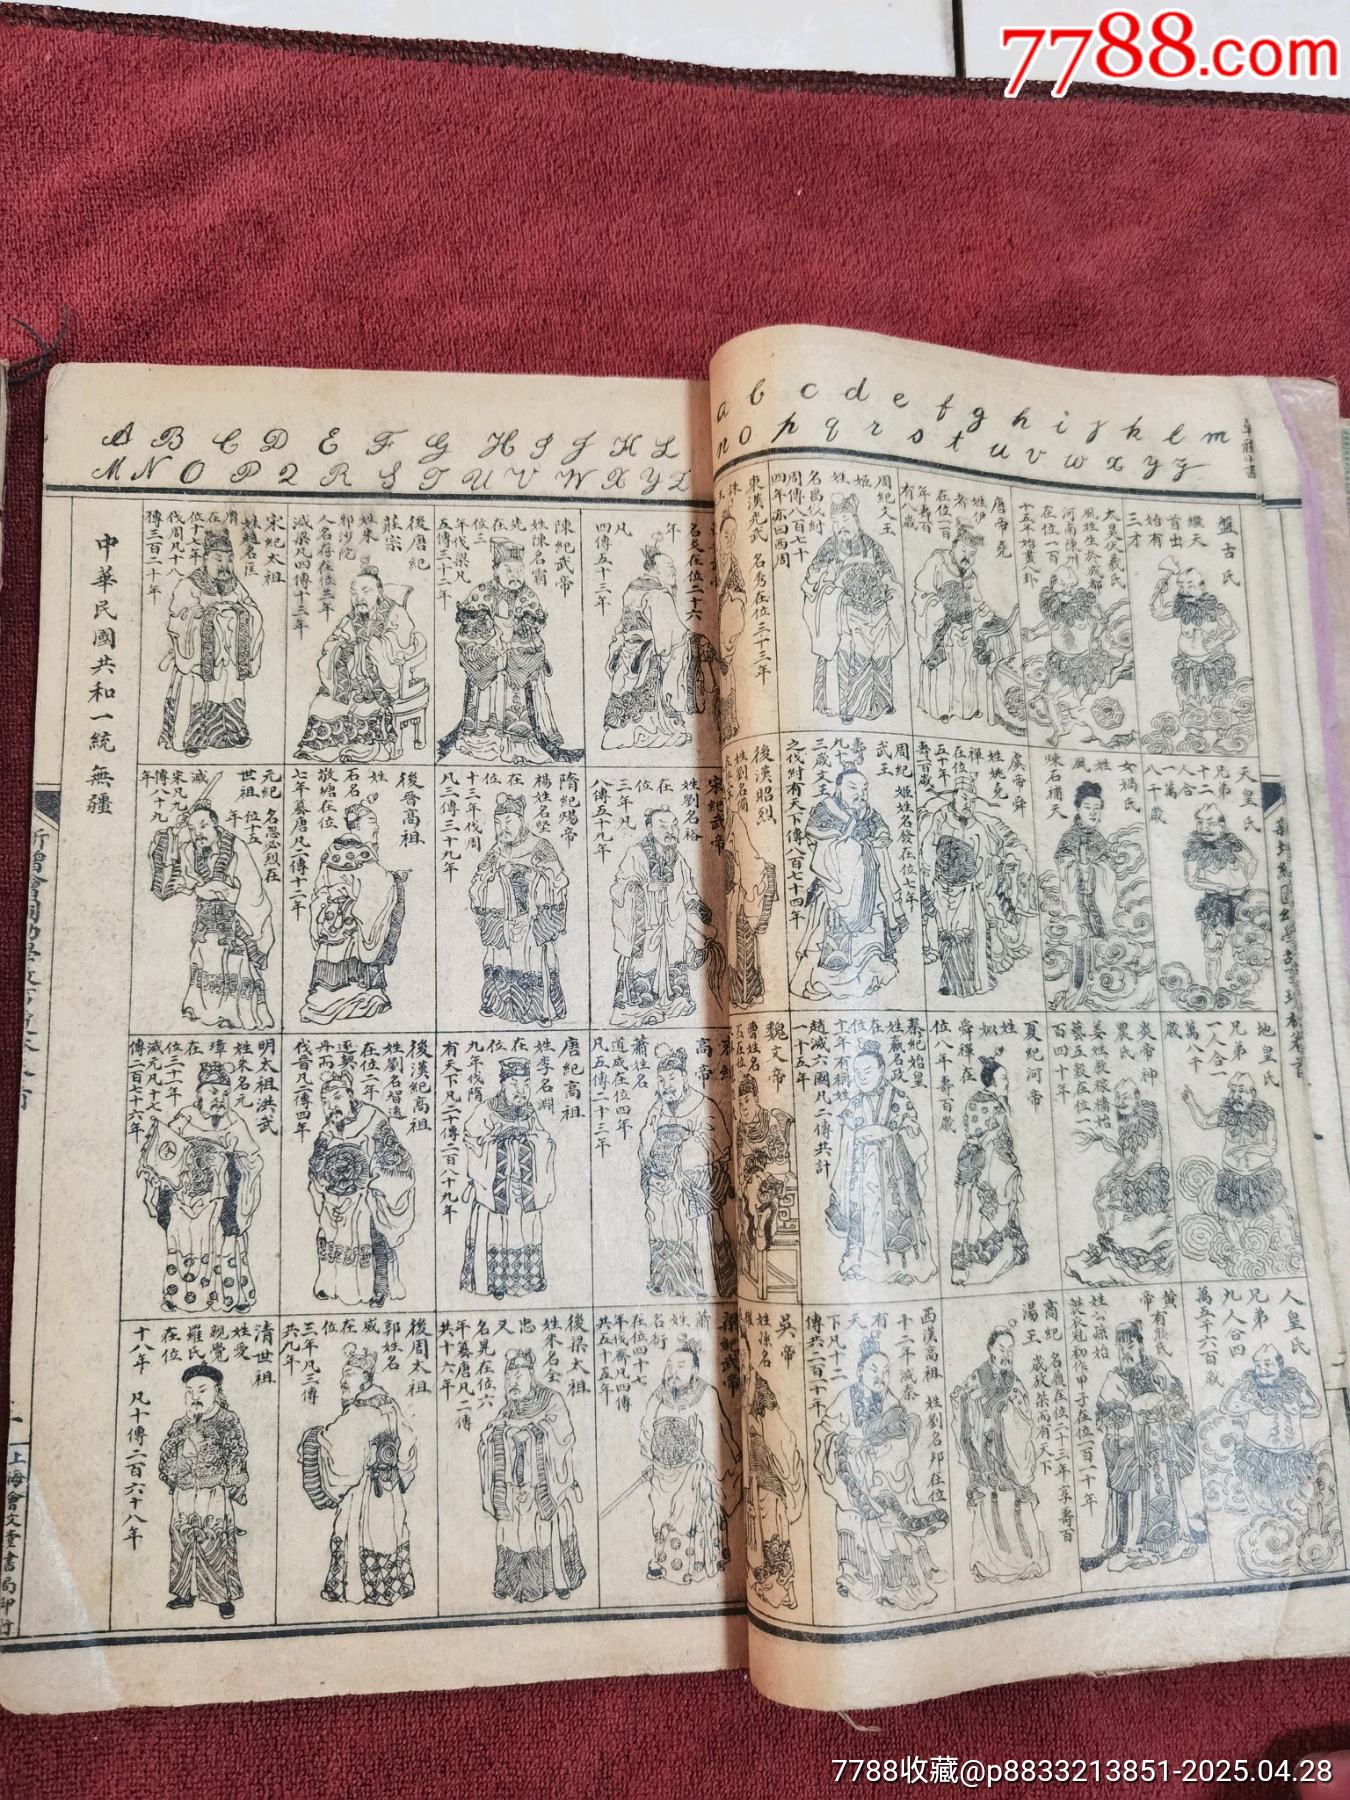 7788.com
a b c d e f g h i j k l m
n o p q r s t u v w x y z
盤古氏
繼天
首出
始有
三才
太昊伏羲氏
風姓生於成都
河南陳州
在位一百
十五年始畫八卦
唐帝堯
姓伊
耆
在位一百
年壽百
有八歲
周紀文王
姬
姓
名昌伐紂
周傳八百七十
四年亦曰西周
東漢光武
名秀在位三十三年
天皇氏
兄弟
十二
人合
一萬
八千歲
女媧氏
姓
風
煉石補天
虞帝舜
姓姚堯
禪
在位
五十年
壽一百歲
周紀
武王
姬姓名發在位七年
壽
九十
三歲文王
之伐紂有天下傳八百七十四年
後漢昭烈
姓劉名備
地皇氏
兄弟
一人合一
萬八千
歲
炎帝神
農氏
姜姓教稼穡始
藝五穀在位一
百四十年
夏紀河帝
姓
姒
舜禪在
位八年壽百歲
秦紀始皇
姓嬴名政
在
位
十二年有稱
趙滅六國凡二傳共計
一十五年
魏文帝
曹姓名
人皇氏
兄弟
九人合四
萬五千六百歲
黃帝
有熊氏
姓公孫始
製衣冠初作甲子在位一百一十年
高紀
湯王
名履在位十三年享壽百
歲放桀而有天下
西漢高祖
姓劉名邦在位
十二年滅秦
有
天
下凡十二
傳共二百一十年
吳帝
姓孫名
A B C D E F G H I J K L
M N O P Q R S T U V W X Y Z
年
凡
四傳五十二年
陳紀武帝
姓陳名霸
先
在
位三
年代梁凡
五傳三十二年
後唐紀
莊宗
姓朱
邪沙陀
人名存在位三年
滅梁凡四傳十三年
宋紀太祖
姓趙名匡
胤
在
位十六年
伐周凡十八
傳三百二十年
中華民國共和一統無疆
宋紀武帝
姓劉名裕
在
位
三年凡
八傳五十九年
隋紀煬帝
楊姓名堅
在
位
十三年伐周
凡三傳三十九年
後晉高祖
姓
石名
敬塘在位
七年篡唐凡二傳十二年
元紀
世祖
名忽必烈在
位十五
年
滅
宋凡九
傳八十九
年
高帝
蕭姓名
道成在位四年
凡五傳二十三年
唐紀高祖
姓李名淵
在
位
九年伐隋
有天下凡二十傳二百八十九年
後漢紀高祖
姓劉名智遠
在位二年
逐契
丹而
伐晉凡二傳四年
明太祖洪武
姓朱名元
璋
在
位三十一年
滅元凡十七
傳二百七十六年
梁紀武帝
蕭
姓
名衍
在位四十七
年伐齊凡四傳
共五十五年
後梁太祖
姓朱名全
忠
又
名晃在位六
年篡唐凡二傳
共十六年
後周太祖
郭姓名
威
在
位
三年凡三傳
共九年
清世祖
姓愛
親覺
羅氏
在位
十八年
凡十傳二百六十八年
上海會文堂書局印行
7788收藏@p8833213851-2025.04.28